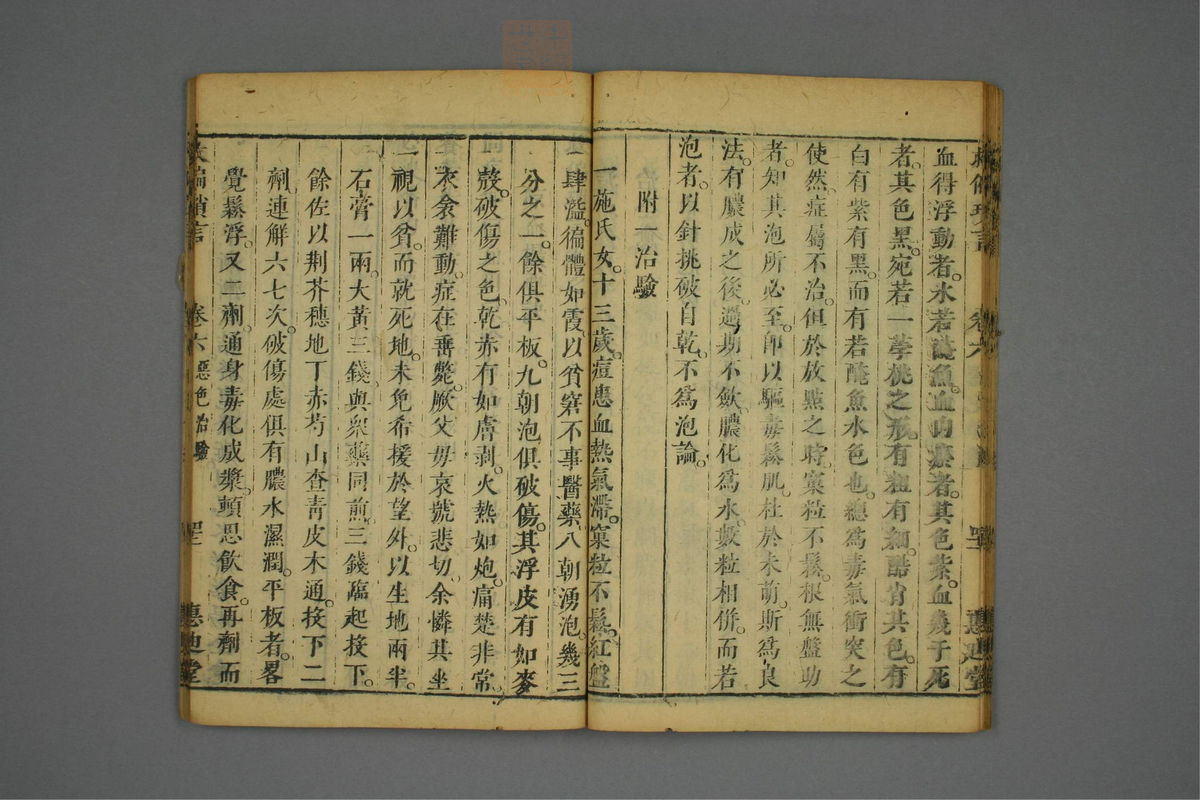 血得浮動者。水若醃魚。血的瘀者。其色紫。血幾于死
者。其色黑。宛若一葶桃之形。有粗有細。酷肖其色。有
白有紫有黑。而有若醃魚水色也。總為毒氣衝突之
使然。症屬不治。但於放點之時。窠粒不鬆。根無盤助
者。知其泡所必至。即以驅毒鬆肌。杜於未萌。斯為良
法。有膿成之後。過期不斂。膿化為水。數粒相併。而若
泡者。以針挑破自乾。不為泡論。
附一治驗
一施氏女。十三歲。痘患血熱氣滯。窠粒不鬆。紅盤
肆濫。徧體如霞。以貧窘不事醫藥。八朝湧泡。幾三
分之一。餘俱平板。九朝泡俱破傷。其浮皮有如麥
殼。破傷之色。乾赤有如膚剥。火熱如炮。痛楚非常。
衣衾難動。症在垂斃。厥父母哀號悲切。余憐其坐
視以貧。而就死地。未免希援於望外。以生地兩半。
石膏一兩。大黃三錢。與衆藥同煎。三錢臨起投下。
餘佐以荆芥穗地丁赤芍山查青皮木通。投下二
劑。連解六七次。破傷處俱有膿水濕潤。平板者。畧
覺鬆浮。又二劑。通身毒化成漿。頓思飲食。再劑而
卷六 惡色治驗